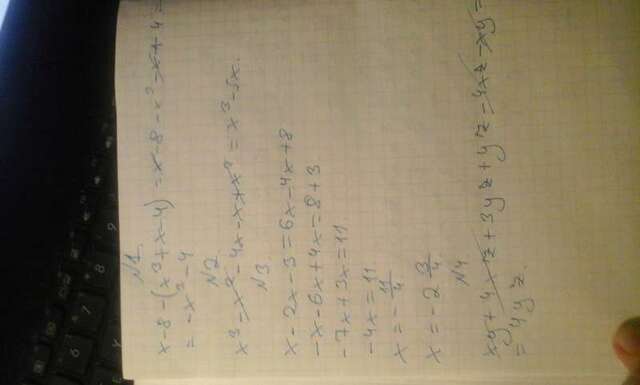 N1.
x-8-(x³+x-4)=x-8-x³-x+4=
=-x³-4
N2
x³-x²-4x-x+x²=x³-5x.
N3
x-2x-3=6x-4x+8
-x-6x+4x=8+3
-7x+3x=11
-4x=11
x=-11/4
x=-2 3/4
N4
xy+4xz+3yz+yz-4xz-xy=
=4yz.